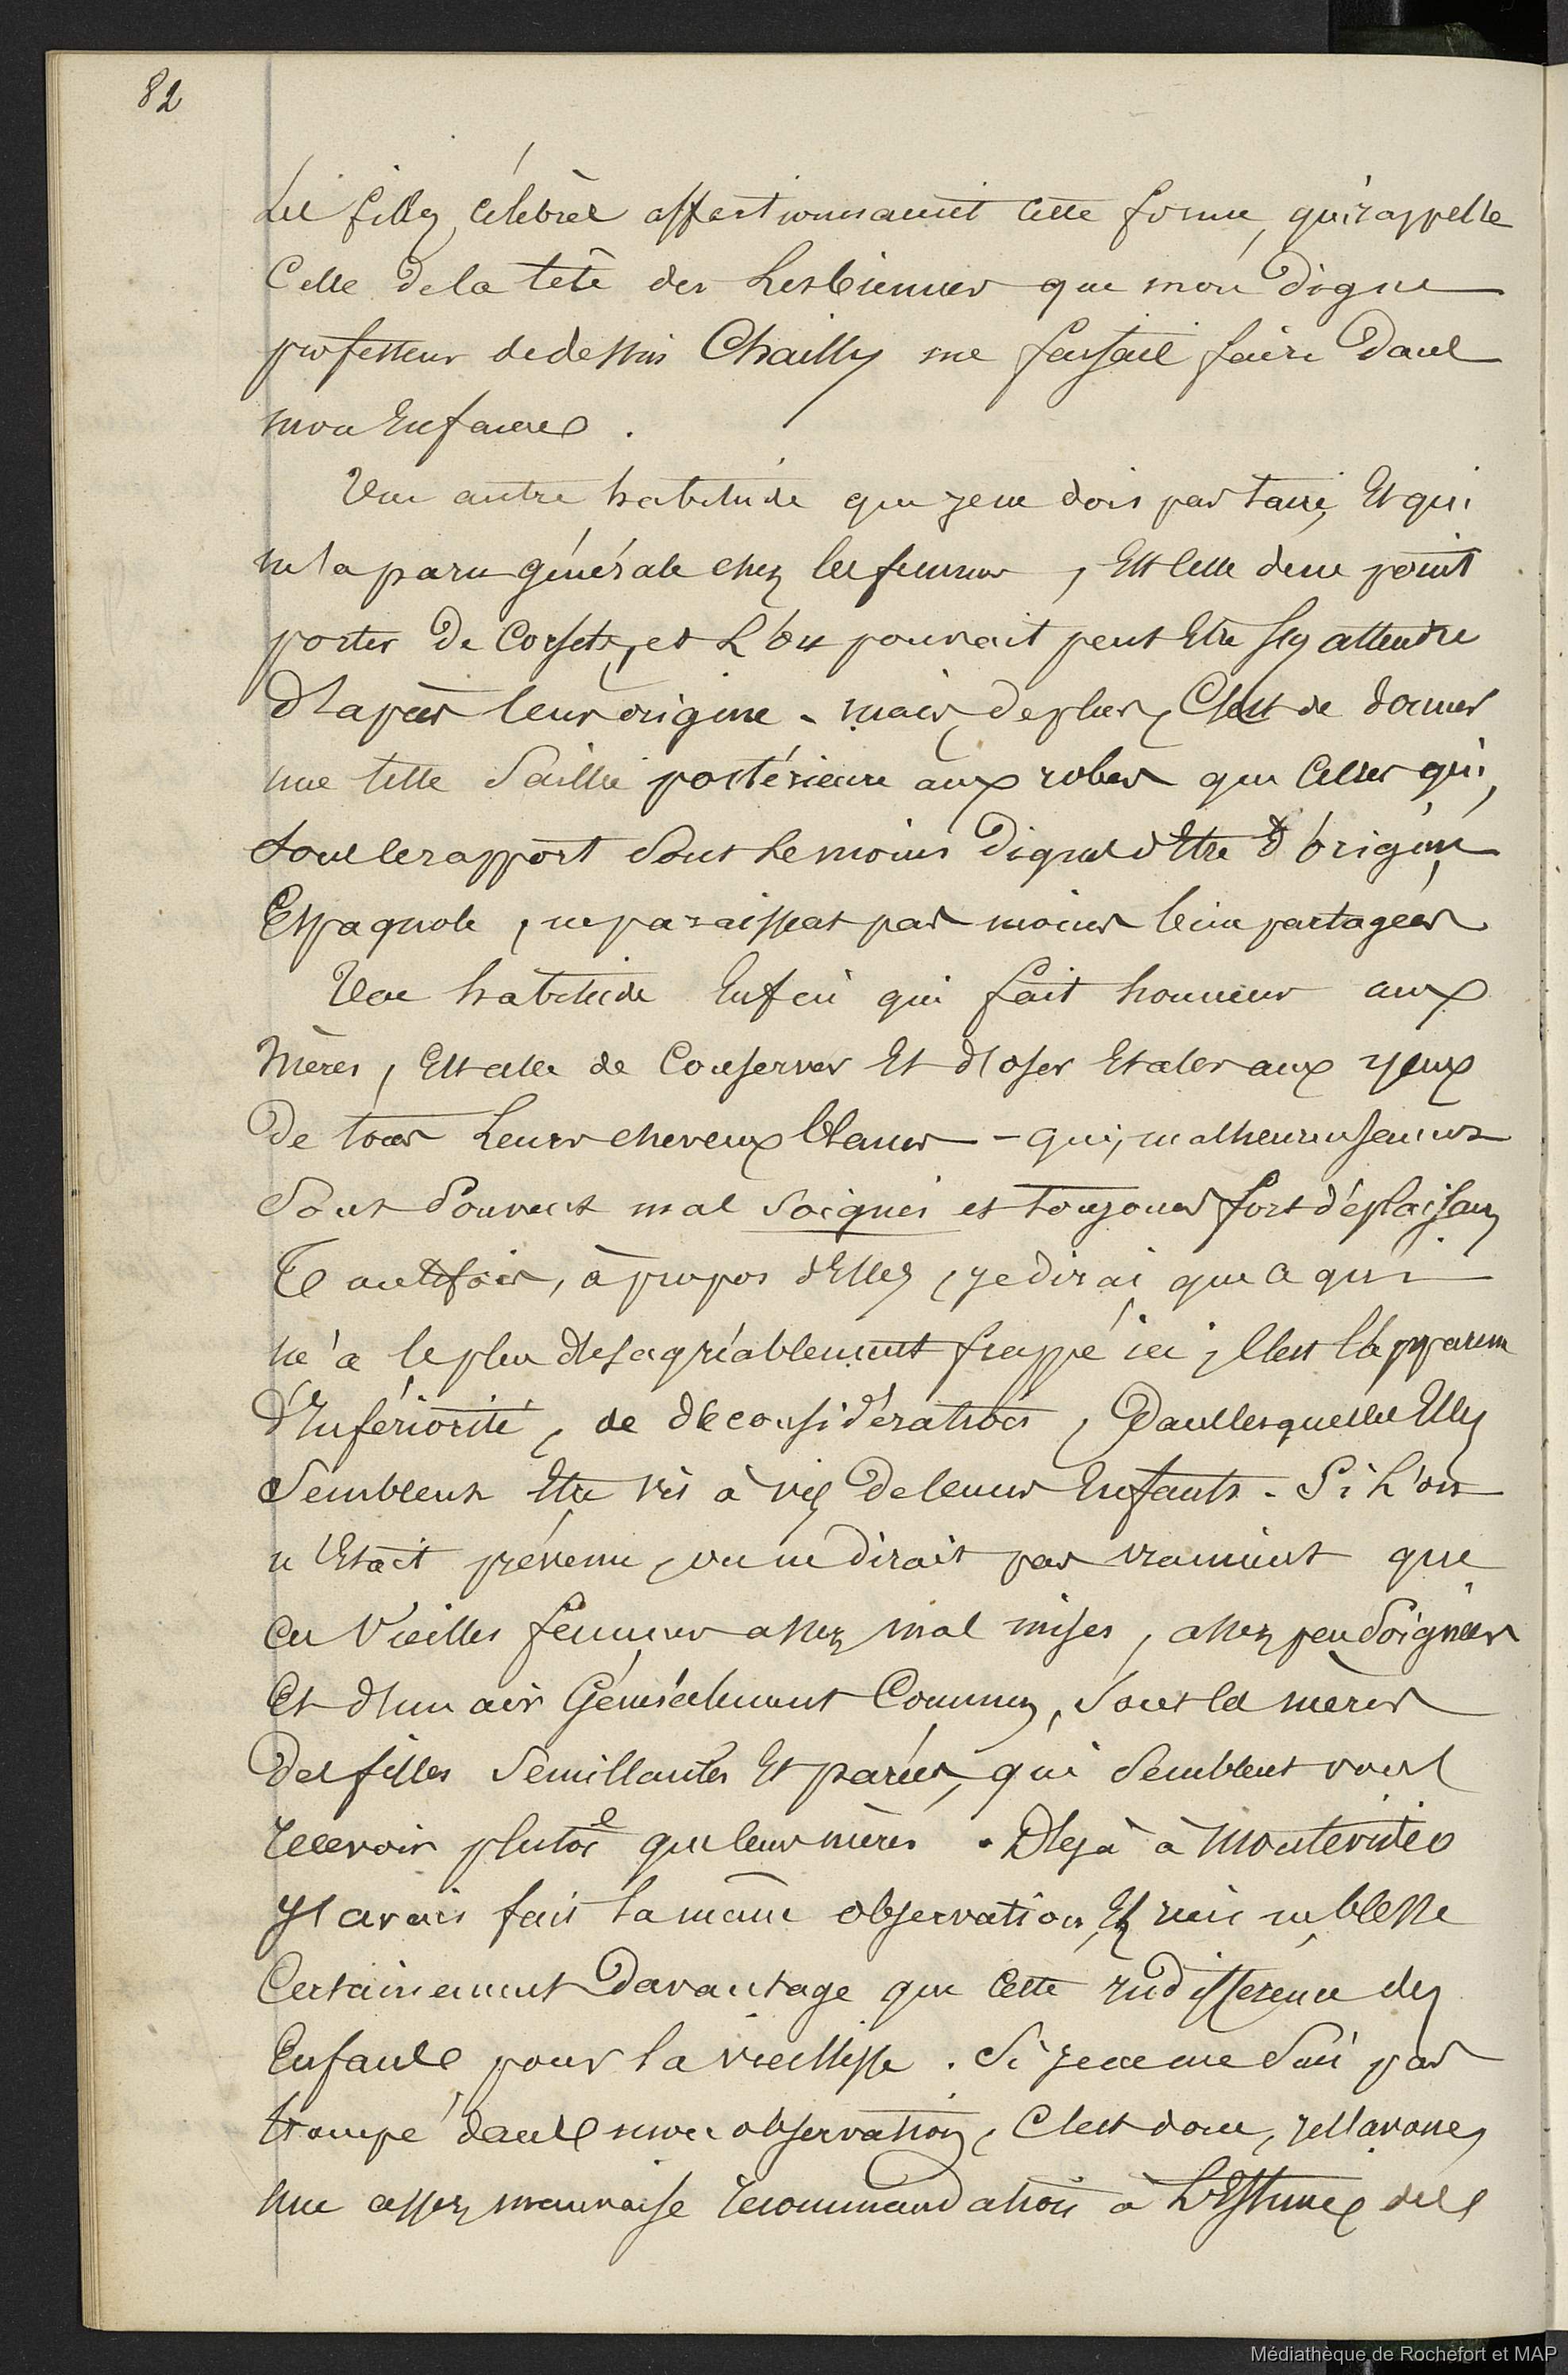 82
Les filles célèbres affectionnaient cette forme, qui rappelle
Celle de la tête des Lesbiennes que mon digne
professeur de dessin Chailly me faisait faire dans
mon Enfance.
Une autre habitude que je ne dois pas taire, Et qui
m'a paru générale chez les femmes, Est celle de ne point
porter de Corsets, et L'on pouvait peut Etre s'y attendre
d'après leur origine - mais, de plus, C'est de donner
une telle Saillie postérieure aux robes que Celles qui,
sous le rapport sont le moins dignes d'Etre d'origine
Espagnole, ne paraissent pas moins bien partagées
Une habitude Enfin qui fait honneur aux
Mères, Est celle de Conserver Et d'oser Etaler aux yeux
de tous Leurs cheveux blancs - qui, malheureusement
Sont Souvent mal Soignés et toujours fort déplaisans
Toutefois, à propos d'Elles, je dirai que ce qui
m'a le plus désagréablement frappé ici, C'est l'apparence
d'Infériorité, de déconsidération, Dans lesquelles Elles
Semblent Etre vis à vis de leurs Enfants - Si L'on
n'Etait prévenu, on ne dirait pas vraiment que
Ces Vieilles femmes assez mal mises, assez peu Soignées
Et d'un air Généralement Commun, Sont les mères
des filles Semillantes Et parées, qui Semblent vous
recevoir plutôt que leurs mères. Déjà à Montevideo
J'avais fait la même observation, Et rien ne blesse
Certainement Davantage que Cette Indifférence des
Enfants pour la vieillesse. Si je ne me Suis pas
trompé dans mon observation, C'est donc, je l'avoue,
une assez mauvaise recommandation à L'Estime des
Médiathèque de Rochefort et MAP